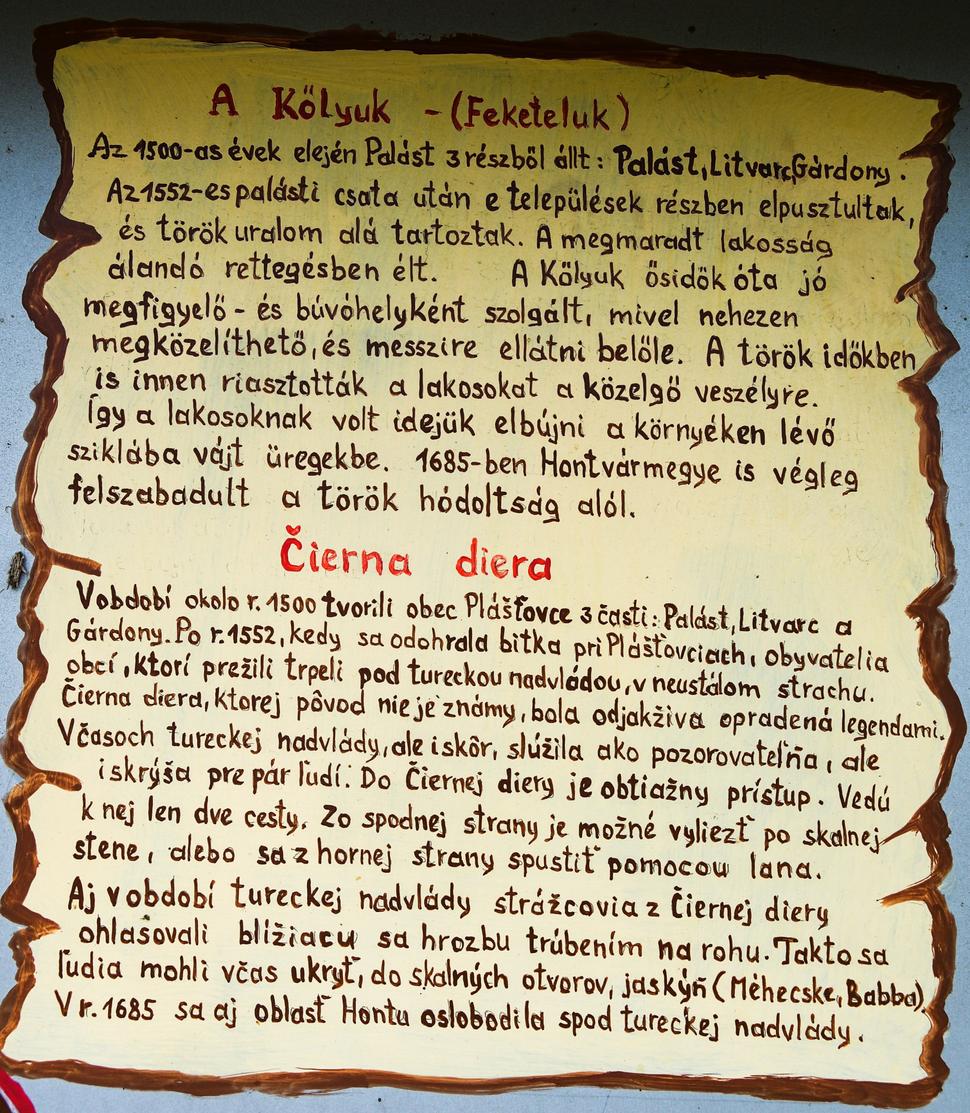 A Kőlyuk - (Feketeluk)
Az 1500-as évek elején Palást 3 részből állt: Palást, Litvarc, Gárdony.
Az 1552-es palásti csata után e települések részben elpusztultak,
és török uralom alá tartoztak. A megmaradt lakosság
álandó rettegésben élt. A Kőlyuk ősidők óta jó
megfigyelő - és búvóhelyként szolgált, mivel nehezen
megközelíthető, és messzire ellátni belőle. A török időkben
is innen riasztották a lakosokat a közelgő veszélyre.
Így a lakosoknak volt idejük elbújni a környéken lévő
sziklába vájt üregekbe. 1685-ben Hontvármegye is végleg
felszabadult a török hódoltság alól.
Čierna diera
V období okolo r. 1500 tvorili obec Plášťovce 3 časti: Palást, Litvarc a
Gárdony. Po r. 1552, kedy sa odohrala bitka pri Plášťovciach, obyvatelia
obcí, ktorí prežili trpeli pod tureckou nadvládou, v neustálom strachu.
Čierna diera, ktorej pôvod nie je známy, bola odjakživa opradená legendami.
V časoch tureckej nadvlády, ale i skôr, slúžila ako pozorovateľňa, ale
i skrýša pre pár ľudí. Do Čiernej diery je obtiažny prístup. Vedú
k nej len dve cesty. Zo spodnej strany je možné vyliezť po skalnej
stene, alebo sa z hornej strany spustiť pomocou lana.
Aj v období tureckej nadvlády strážcovia z Čiernej diery
ohlašovali blížiacu sa hrozbu trúbením na rohu. Takto sa
ľudia mohli včas ukryť, do skalných otvorov, jaskýň (Méhecske, Babba)
V r. 1685 sa aj oblasť Hontu oslobodila spod tureckej nadvlády.